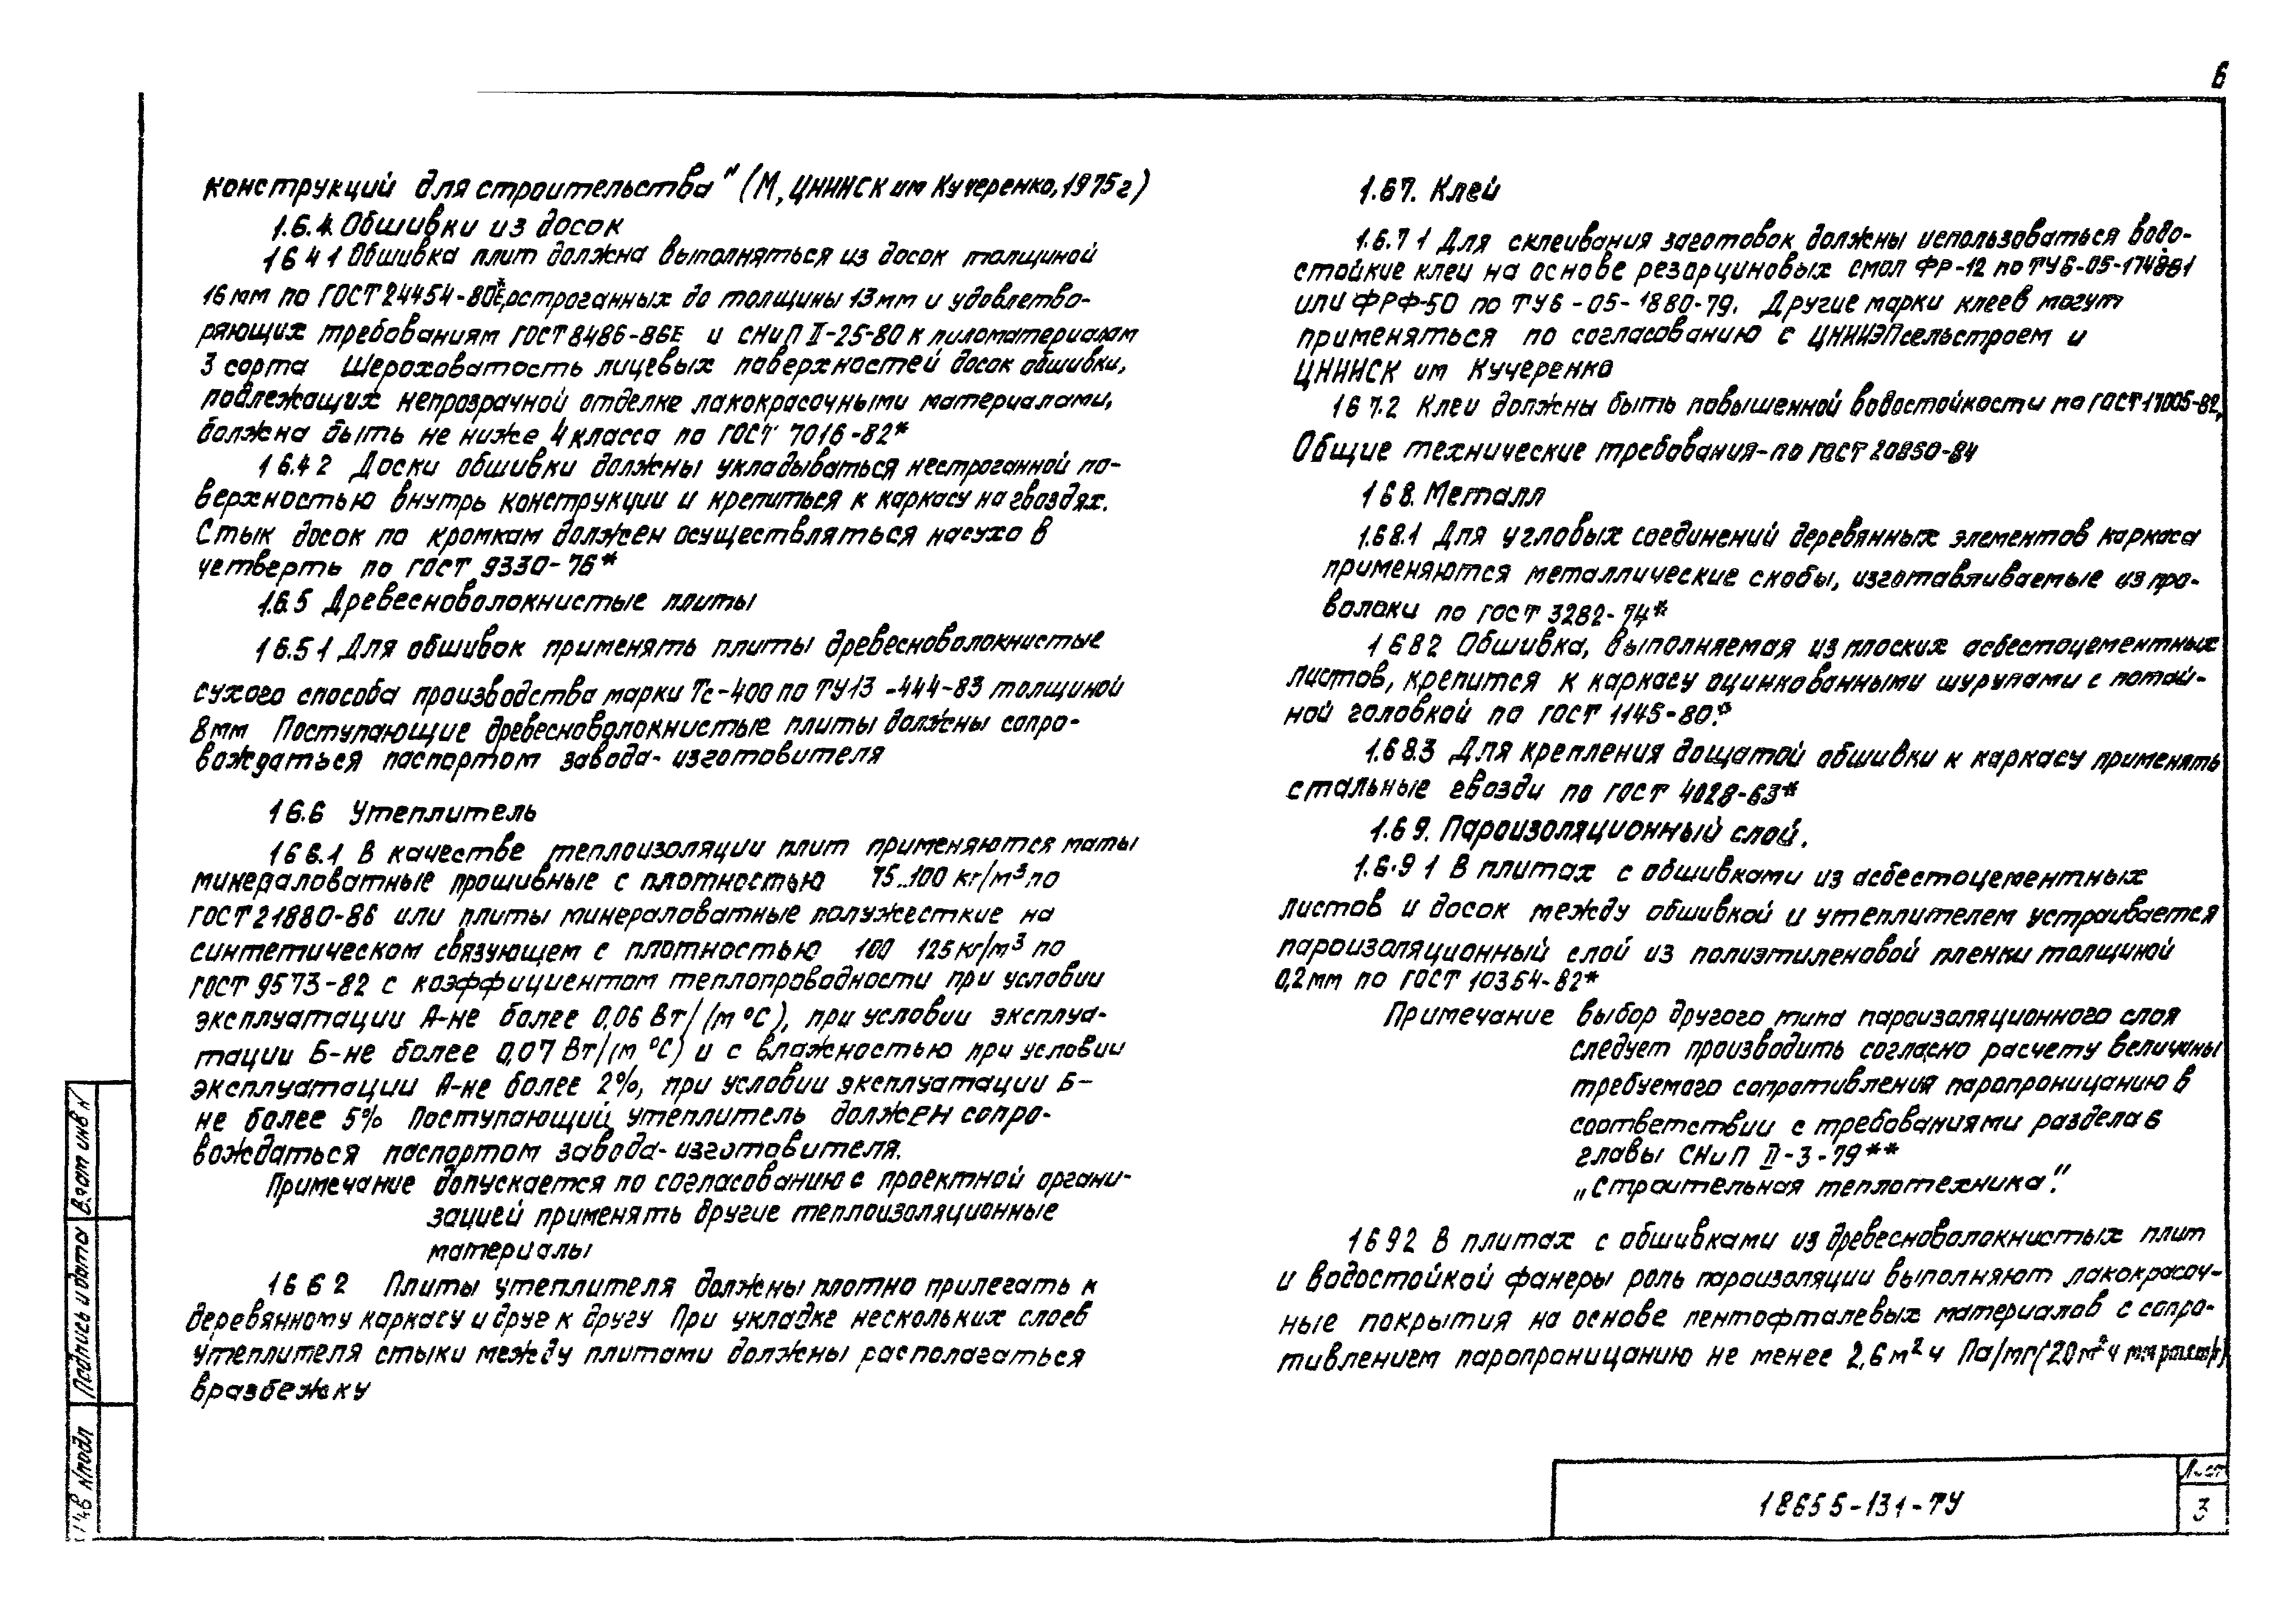 6
конструкций для строительства" (М, ЦНИИСК им Кучеренко, 1975г)
1.6.4. Обшивки из досок
1 6 4 1 Обшивка плит должна выполняться из досок толщиной
16 мм по ГОСТ 24454-80Е, остроганных до толщины 13мм и удовлетво-
ряющих требованиям ГОСТ 8486-86Е и СНиП II-25-80 к пиломатериалам
3 сорта Шероховатость лицевых поверхностей досок обшивки,
подлежащих непрозрачной отделке лакокрасочными материалами,
должна быть не ниже 4 класса по ГОСТ 7016-82*
1 6.4 2 Доски обшивки должны укладываться нестроганной по-
верхностью внутрь конструкции и крепиться к каркасу на гвоздях.
Стык досок по кромкам должен осуществляться насухо в
четверть по ГОСТ 9330-76*
1.6.5 Древесноволокнистые плиты
1 6.5 1 Для обшивок применять плиты древесноволокнистые
сухого способа производства марки Тс-400 по ТУ13-444-83 толщиной
8мм Поступающие древесноволокнистые плиты должны сопро-
вождаться паспортом завода-изготовителя
1 6.6 Утеплитель
1 6 6.1 В качестве теплоизоляции плит применяются маты
минераловатные прошивные с плотностью 75..100 кг/м³ по
ГОСТ 21880-86 или плиты минераловатные полужесткие на
синтетическом связующем с плотностью 100 125 кг/м³ по
ГОСТ 9573-82 с коэффициентом теплопроводности при условии
эксплуатации А-не более 0,06 Вт/(м °С), при условии эксплуа-
тации Б-не более 0,07 Вт/(м °С) и с влажностью при условии
эксплуатации А-не более 2%, при условии эксплуатации Б-
не более 5% Поступающий утеплитель должен сопро-
вождаться паспортом завода-изготовителя.
Примечание допускается по согласованию с проектной органи-
зацией применять другие теплоизоляционные
материалы
1 6 6 2 Плиты утеплителя должны плотно прилегать к
деревянному каркасу и друг к другу При укладке нескольких слоев
утеплителя стыки между плитами должны располагаться
вразбежку
1.6 7. Клей
1.6.7 1 Для склеивания заготовок должны использоваться водо-
стойкие клеи на основе резорциновых смол ФР-12 по
или ФРФ-50 по ТУ6-05-1880-79. Другие марки клеев могут
применяться по согласованию с ЦНИИЭПсельстроем и
ЦНИИСК им Кучеренко
1 6 7.2 Клеи должны быть повышенной водостойкости по ГОСТ 17005-82,
Общие технические требования-по ГОСТ 20850-84
1 6 8. Металл
1.6 8.1 Для угловых соединений деревянных элементов каркаса
применяются металлические скобы, изготавливаемые из про-
волоки по ГОСТ 3282-74*
1 6 8 2 Обшивка, выполняемая из плоских асбестоцементных
листов, крепится к каркасу оцинкованными шурупами с потай-
ной головкой по ГОСТ 1145-80.*
1.6 8.3 Для крепления дощатой обшивки к каркасу применять
стальные гвозди по ГОСТ 4028-63*
1.6 9. Пароизоляционный слой.
1.6.9 1 В плитах с обшивками из асбестоцементных
листов и досок между обшивкой и утеплителем устраивается
пароизоляционный слой из полиэтиленовой пленки толщиной
0,2мм по ГОСТ 10354-82*
Примечание выбор другого типа пароизоляционного слоя
следует производить согласно расчету величины
требуемого сопротивления паропроницанию в
соответствии с требованиями раздела 6
главы СНиП II-3-79**
„Строительная теплотехника".
1 6 9 2 В плитах с обшивками из древесноволокнистых плит
и водостойкой фанеры роль пароизоляции выполняют лакокрасоч-
ные покрытия на основе пентофталевых материалов с сопро-
тивлением паропроницанию не менее 2,6 м² ч Па/мг (20 м² ч мм рт.ст/г)
Взам инв N
Подпись и дата
Инв N подл
18655-131-ТУ
Лист
3